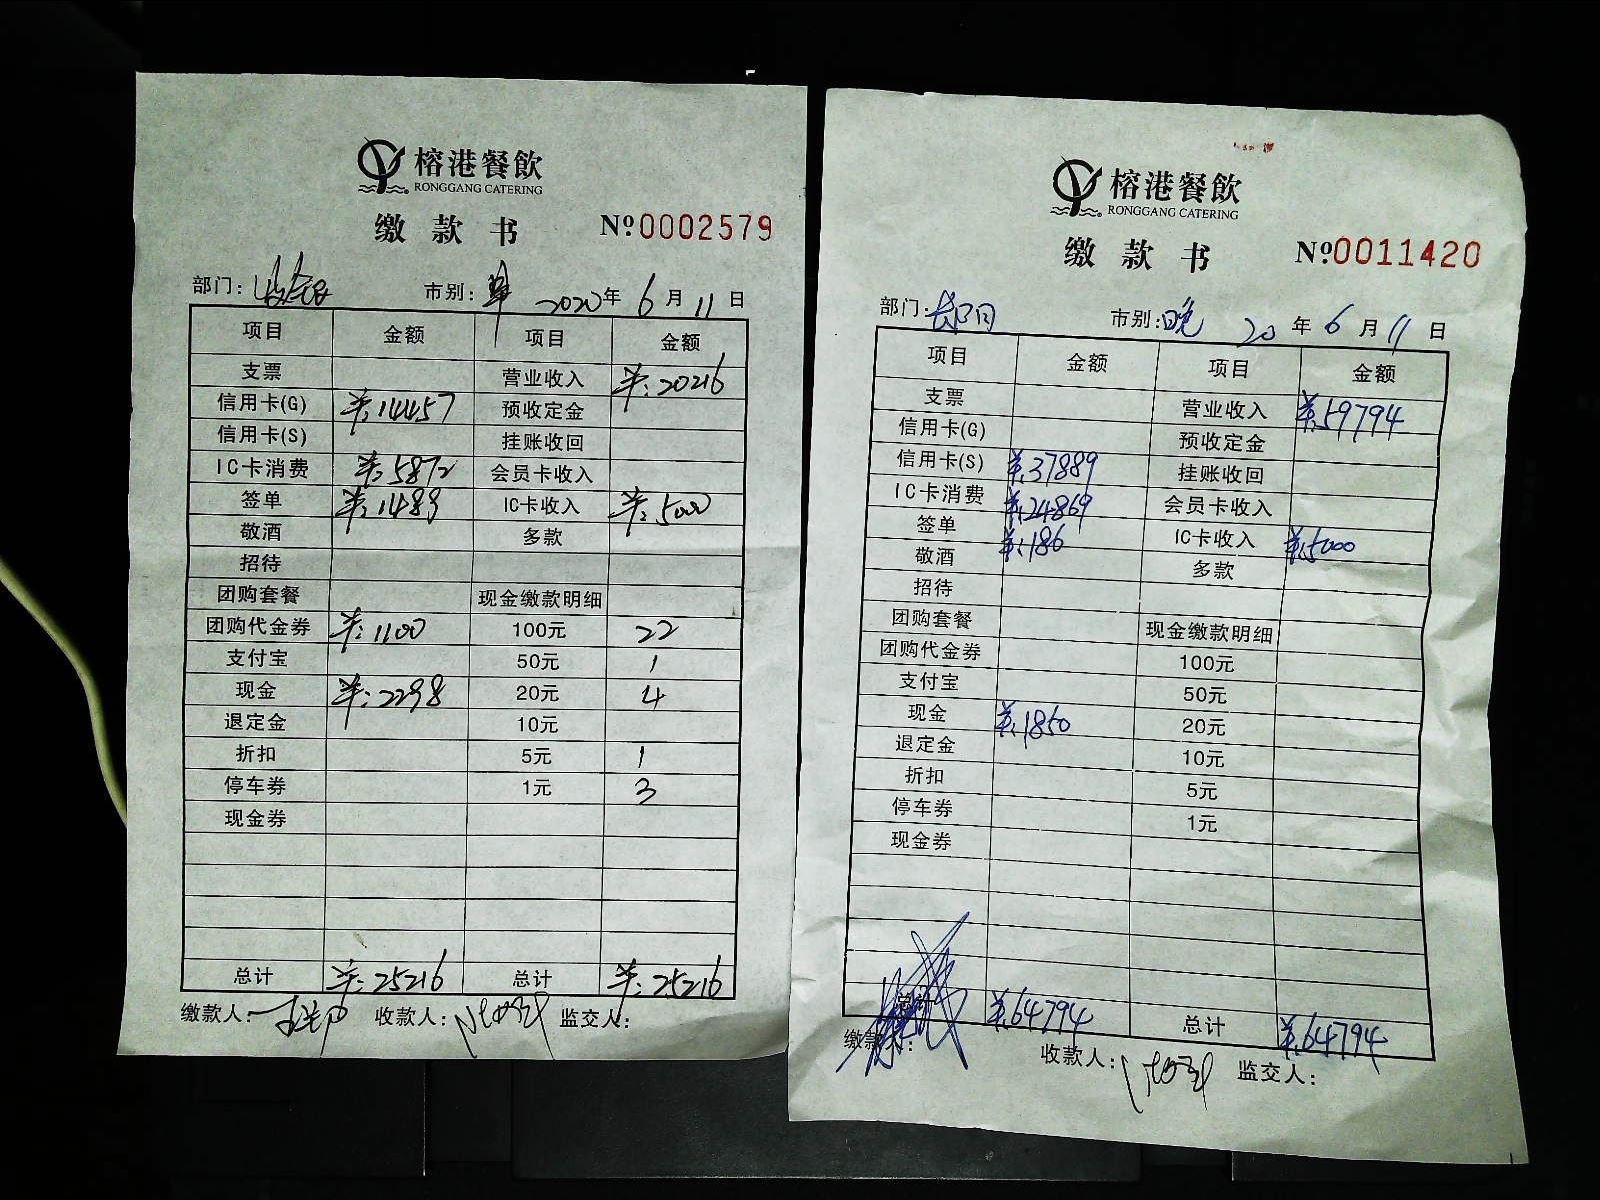 榕港餐飲
RONGGANG CATERING
缴款书 Nº0002579
部门: 市别: 2020年6月11日
项目 金额 项目 金额
支票 营业收入 ¥:20216
信用卡(G) ¥:14457 预收定金
信用卡(S) 挂账收回
IC卡消费 ¥:5872 会员卡收入
签单 ¥:1489 IC卡收入 ¥:5000
敬酒 多款
招待
团购套餐 现金缴款明细
团购代金券 ¥:1100 100元 22
支付宝 50元 1
现金 ¥:2298 20元 4
退定金 10元
折扣 5元 1
停车券 1元 3
现金券
总计 ¥:25216 总计 ¥:25216
缴款人: 收款人: 监交人:
榕港餐飲
RONGGANG CATERING
缴款书 Nº0011420
部门: 市别:晚 20年6月11日
项目 金额 项目 金额
支票 营业收入 ¥:59794
信用卡(G) 预收定金
信用卡(S) ¥:37889 挂账收回
IC卡消费 ¥:24869 会员卡收入
签单 ¥:186 IC卡收入 ¥:5000
敬酒 多款
招待
团购套餐 现金缴款明细
团购代金券 100元
支付宝 50元
现金 ¥:1850 20元
退定金 10元
折扣 5元
停车券 1元
现金券
总计 ¥:64794 总计 ¥:64794
缴款人: 收款人: 监交人: